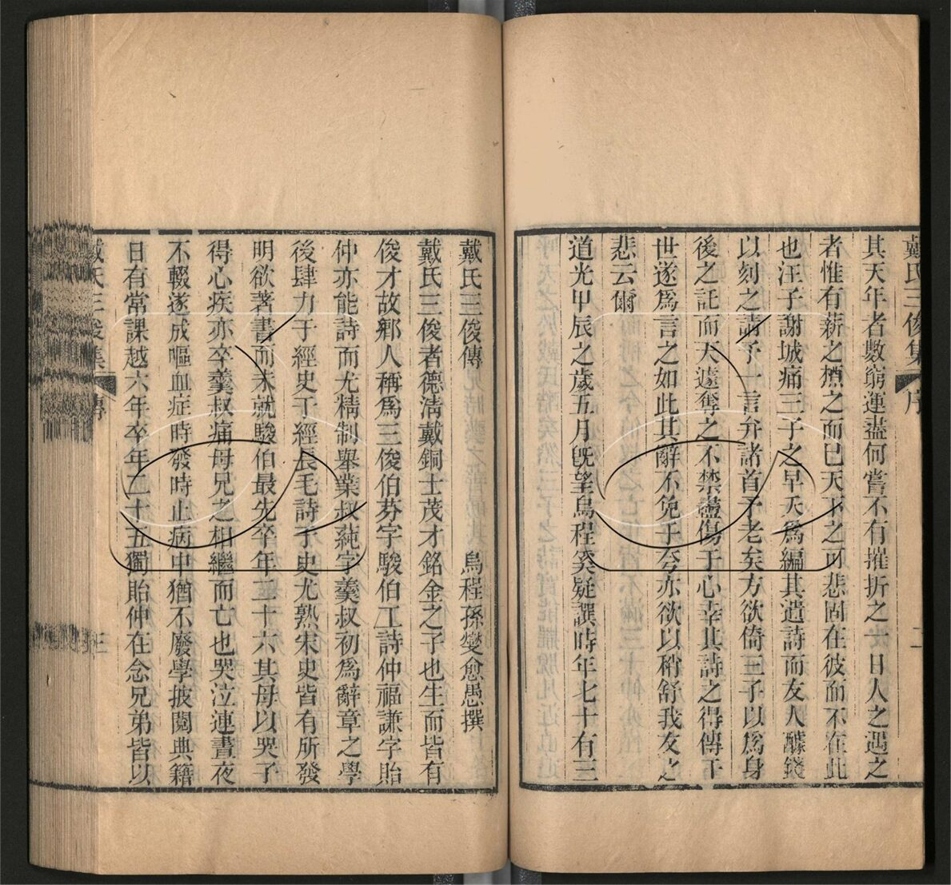 戴氏三俊集 序 二
其天年者數窮運盡何嘗不有摧折之一日人之遇之
者惟有薪之煙之而已天下之可悲固在彼而不在此
也汪子謝城痛三子之早夭爲編其遺詩而友人醵錢
以刻之請予一言弁諸首予老矣方欲倚三子以爲身
後之託而天遽奪之不禁盡傷于心幸其詩之得傳于
世遂爲言之如此其辭不免于夸亦欲以稍舒我友之
悲云爾
道光甲辰之歲五月旣望烏程奚疑譔時年七十有三
戴氏三俊傳
烏程孫燮愈愚撰
戴氏三俊者德淸戴銅士茂才銘金之子也生而皆有
俊才故鄕人稱爲三俊伯芬字駿伯工詩仲福謙字貽
仲亦能詩而尤精制舉業叔蒓字羹叔初爲辭章之學
後肆力于經史于經長毛詩于史尤熟宋史皆有所發
明欲著書而未就駿伯最先卒年三十六其母以哭子
得心疾亦卒羹叔痛母兄之相繼而亡也哭泣連晝夜
不輟遂成嘔血症時發時止病中猶不廢學披閱典籍
日有常課越六年卒年二十五獨貽仲在念兄弟皆以
戴氏三俊集 傳 三